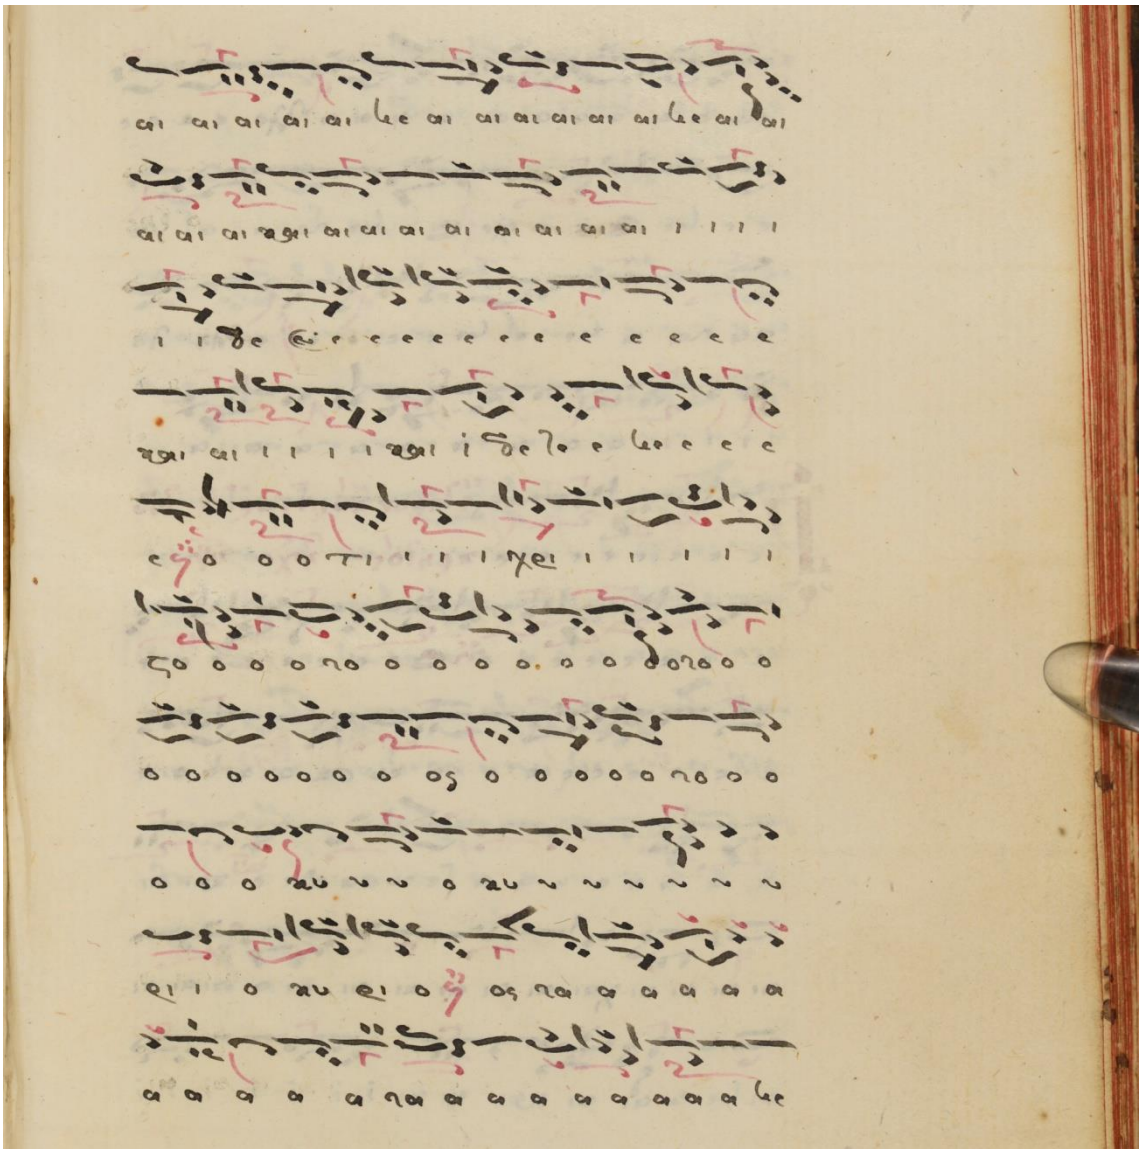 αι αι αι αι αι αι αι αι αι αι αι αι αι
αι αι αι και αι αι αι αι αι αι αι αι ι ι ι ι
ι ι δε ε ε ε ε ε ε ε ε ε ε ε ε
και αι ι ι ι ι και ι δε τε ε ε ε ε
ε ο ο ο τι ι ι ι ι χρι ι ι ι ι ι
ϛο ο ο ο ο ο ο ο ο ο ο ο ο ο
ο ο ο ο ο ο ο ος ο ο ο ο ο ο ο
ο ο ο κυ υ υ ο κυ υ υ υ υ υ υ
ρι ι ο κυ ρι ο ος α α α α α
α α α α α α α α α α α α